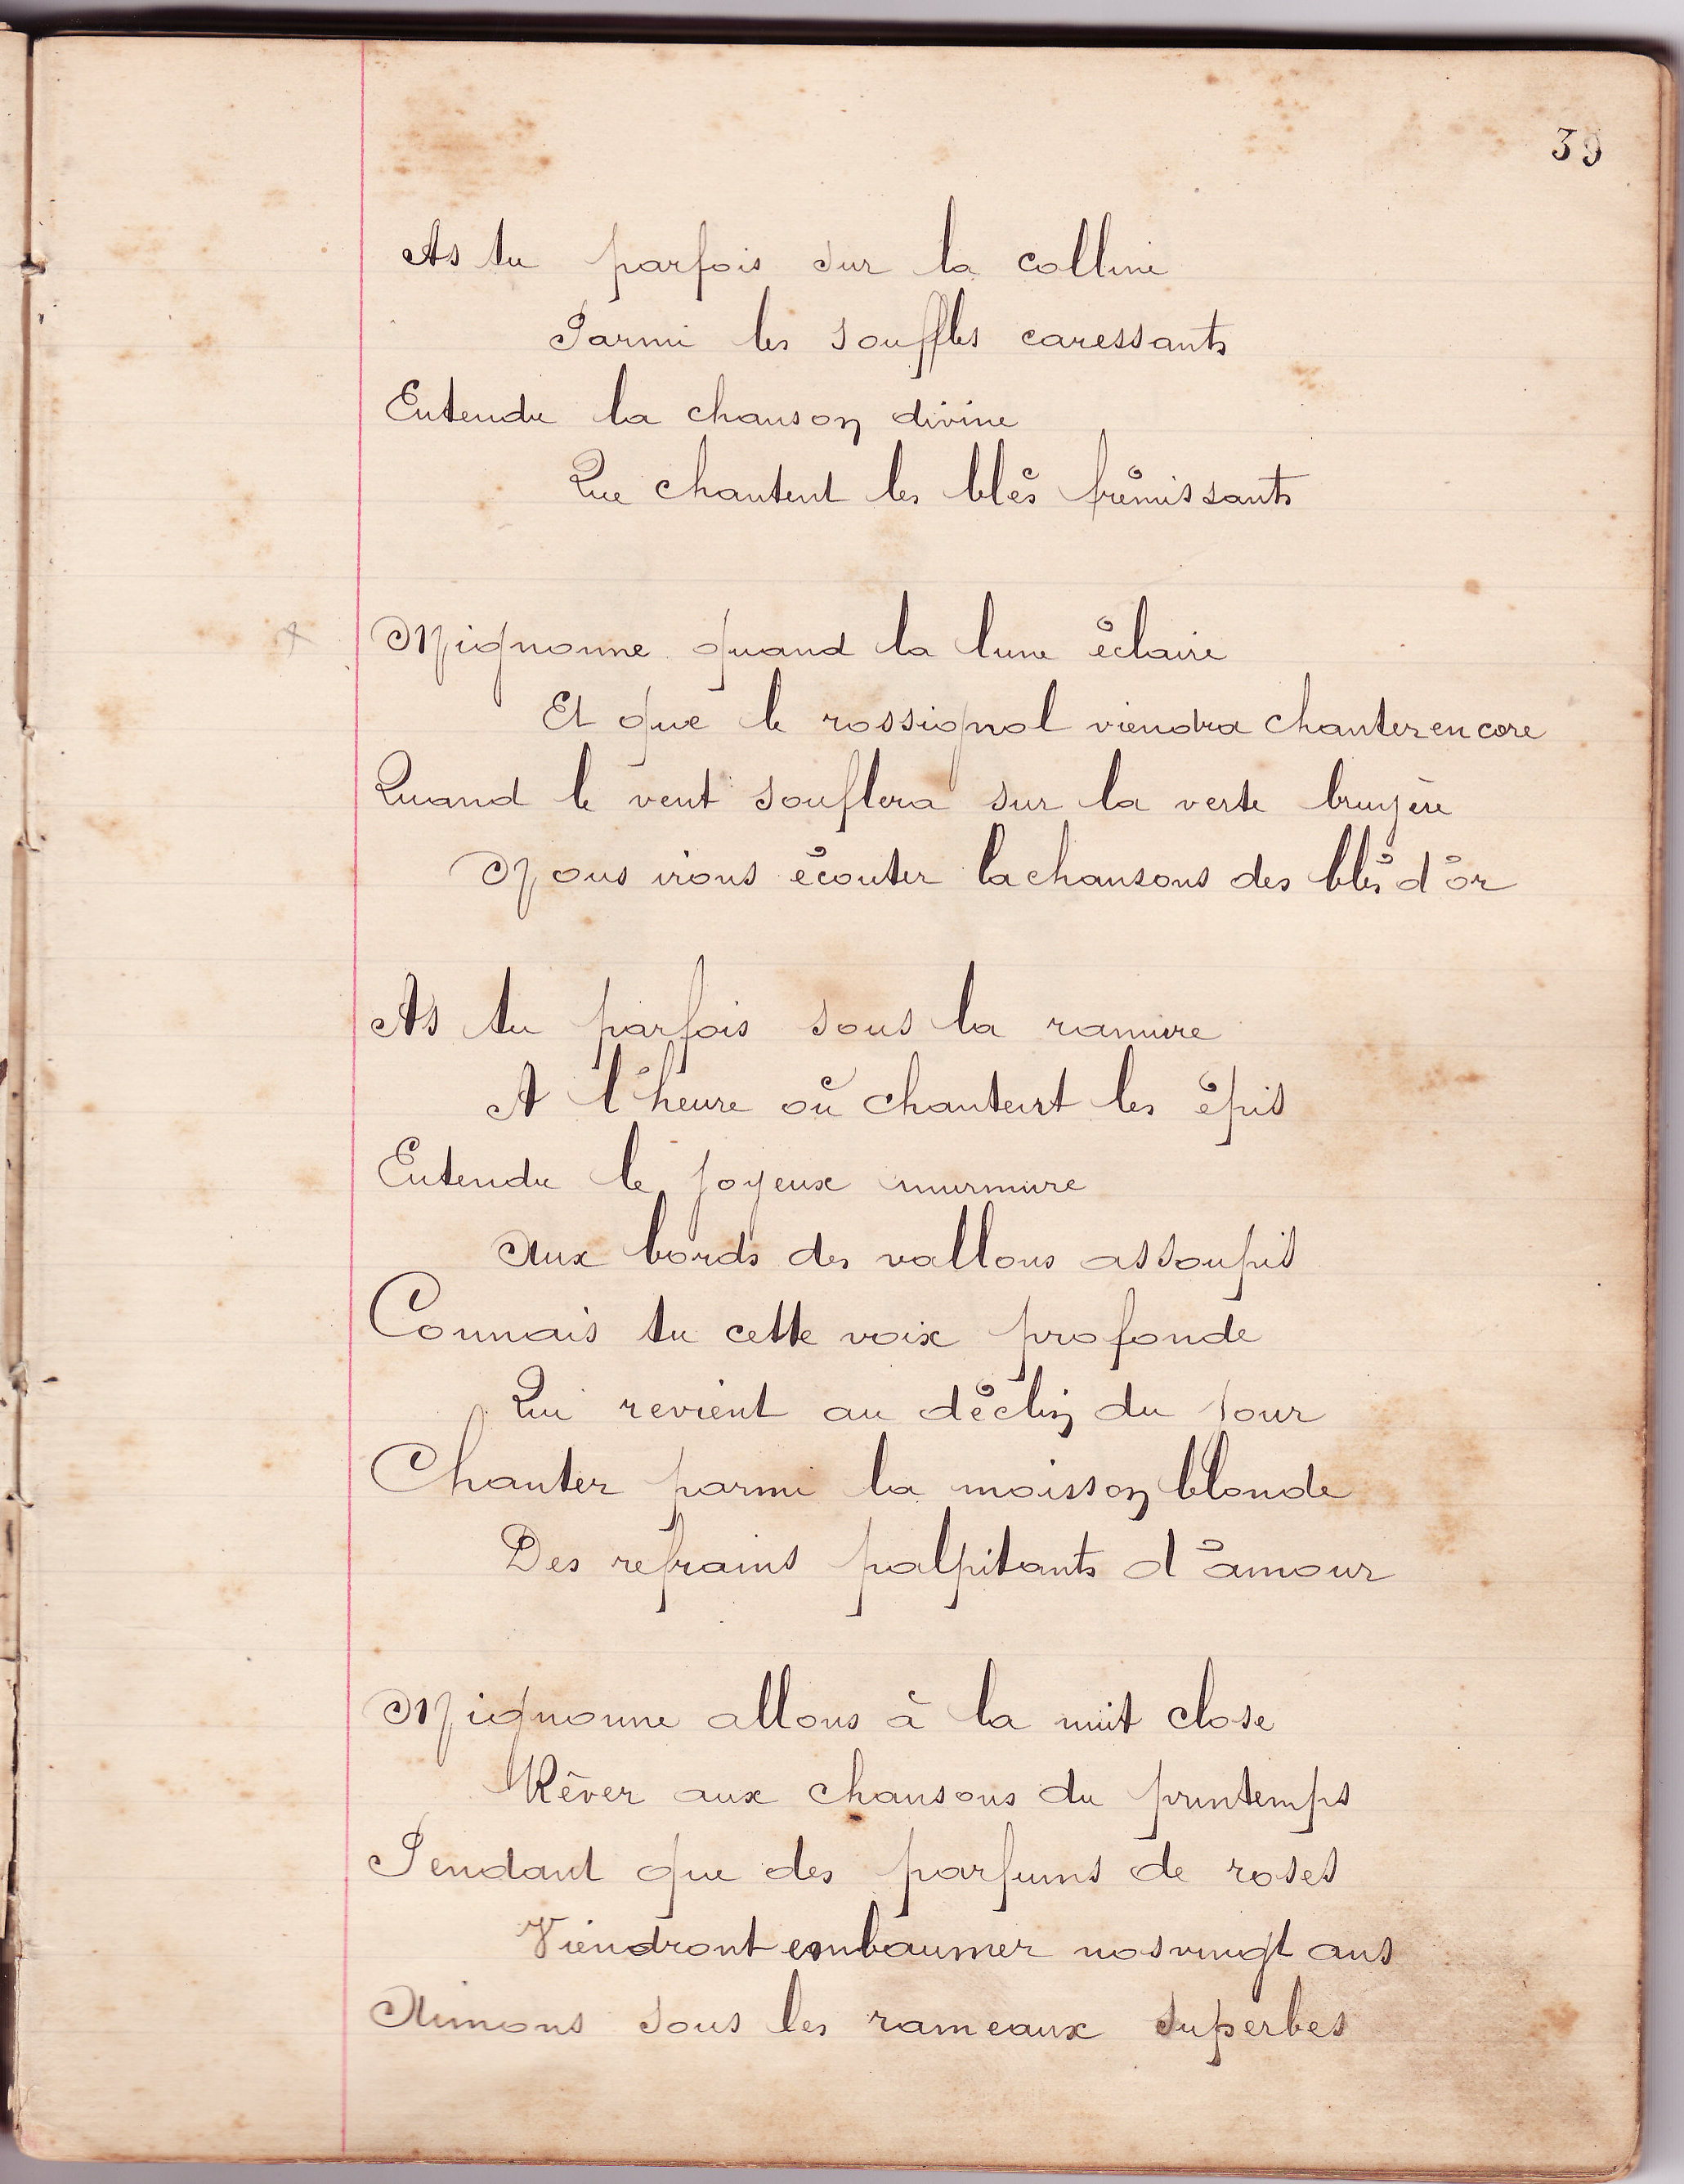 39
As tu parfois sur la colline
Parmi les souffles caressants
Entendu la chanson divine
Que chantent les blés frémissants
Mignonne quand la lune éclaire
Et que le rossignol viendra chanter encore
Quand le vent souflera sur la verte bruyère
Nous irons écouter la chansons des blés d'or
As tu parfois sous la ramure
A l'heure où chantent les épis
Entendu le joyeux murmure
Aux bords des vallons assoupis
Connais tu cette voix profonde
Qui revient au déclin du jour
Chanter parmi la moisson blonde
Des refrains palpitants d'amour
Mignonne allons à la nuit close
Rêver aux chansons du printemps
Pendant que des parfums de roses
Viendront embaumer nos vingt ans
Aimons sous les rameaux superbes